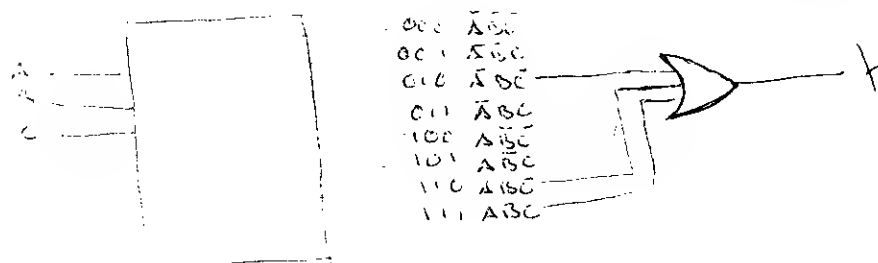 000 A̅B̅C̅
001 A̅B̅C
010 A̅BC̅
011 A̅BC
100 AB̅C̅
101 AB̅C
110 ABC̅
111 ABC
A
B
C